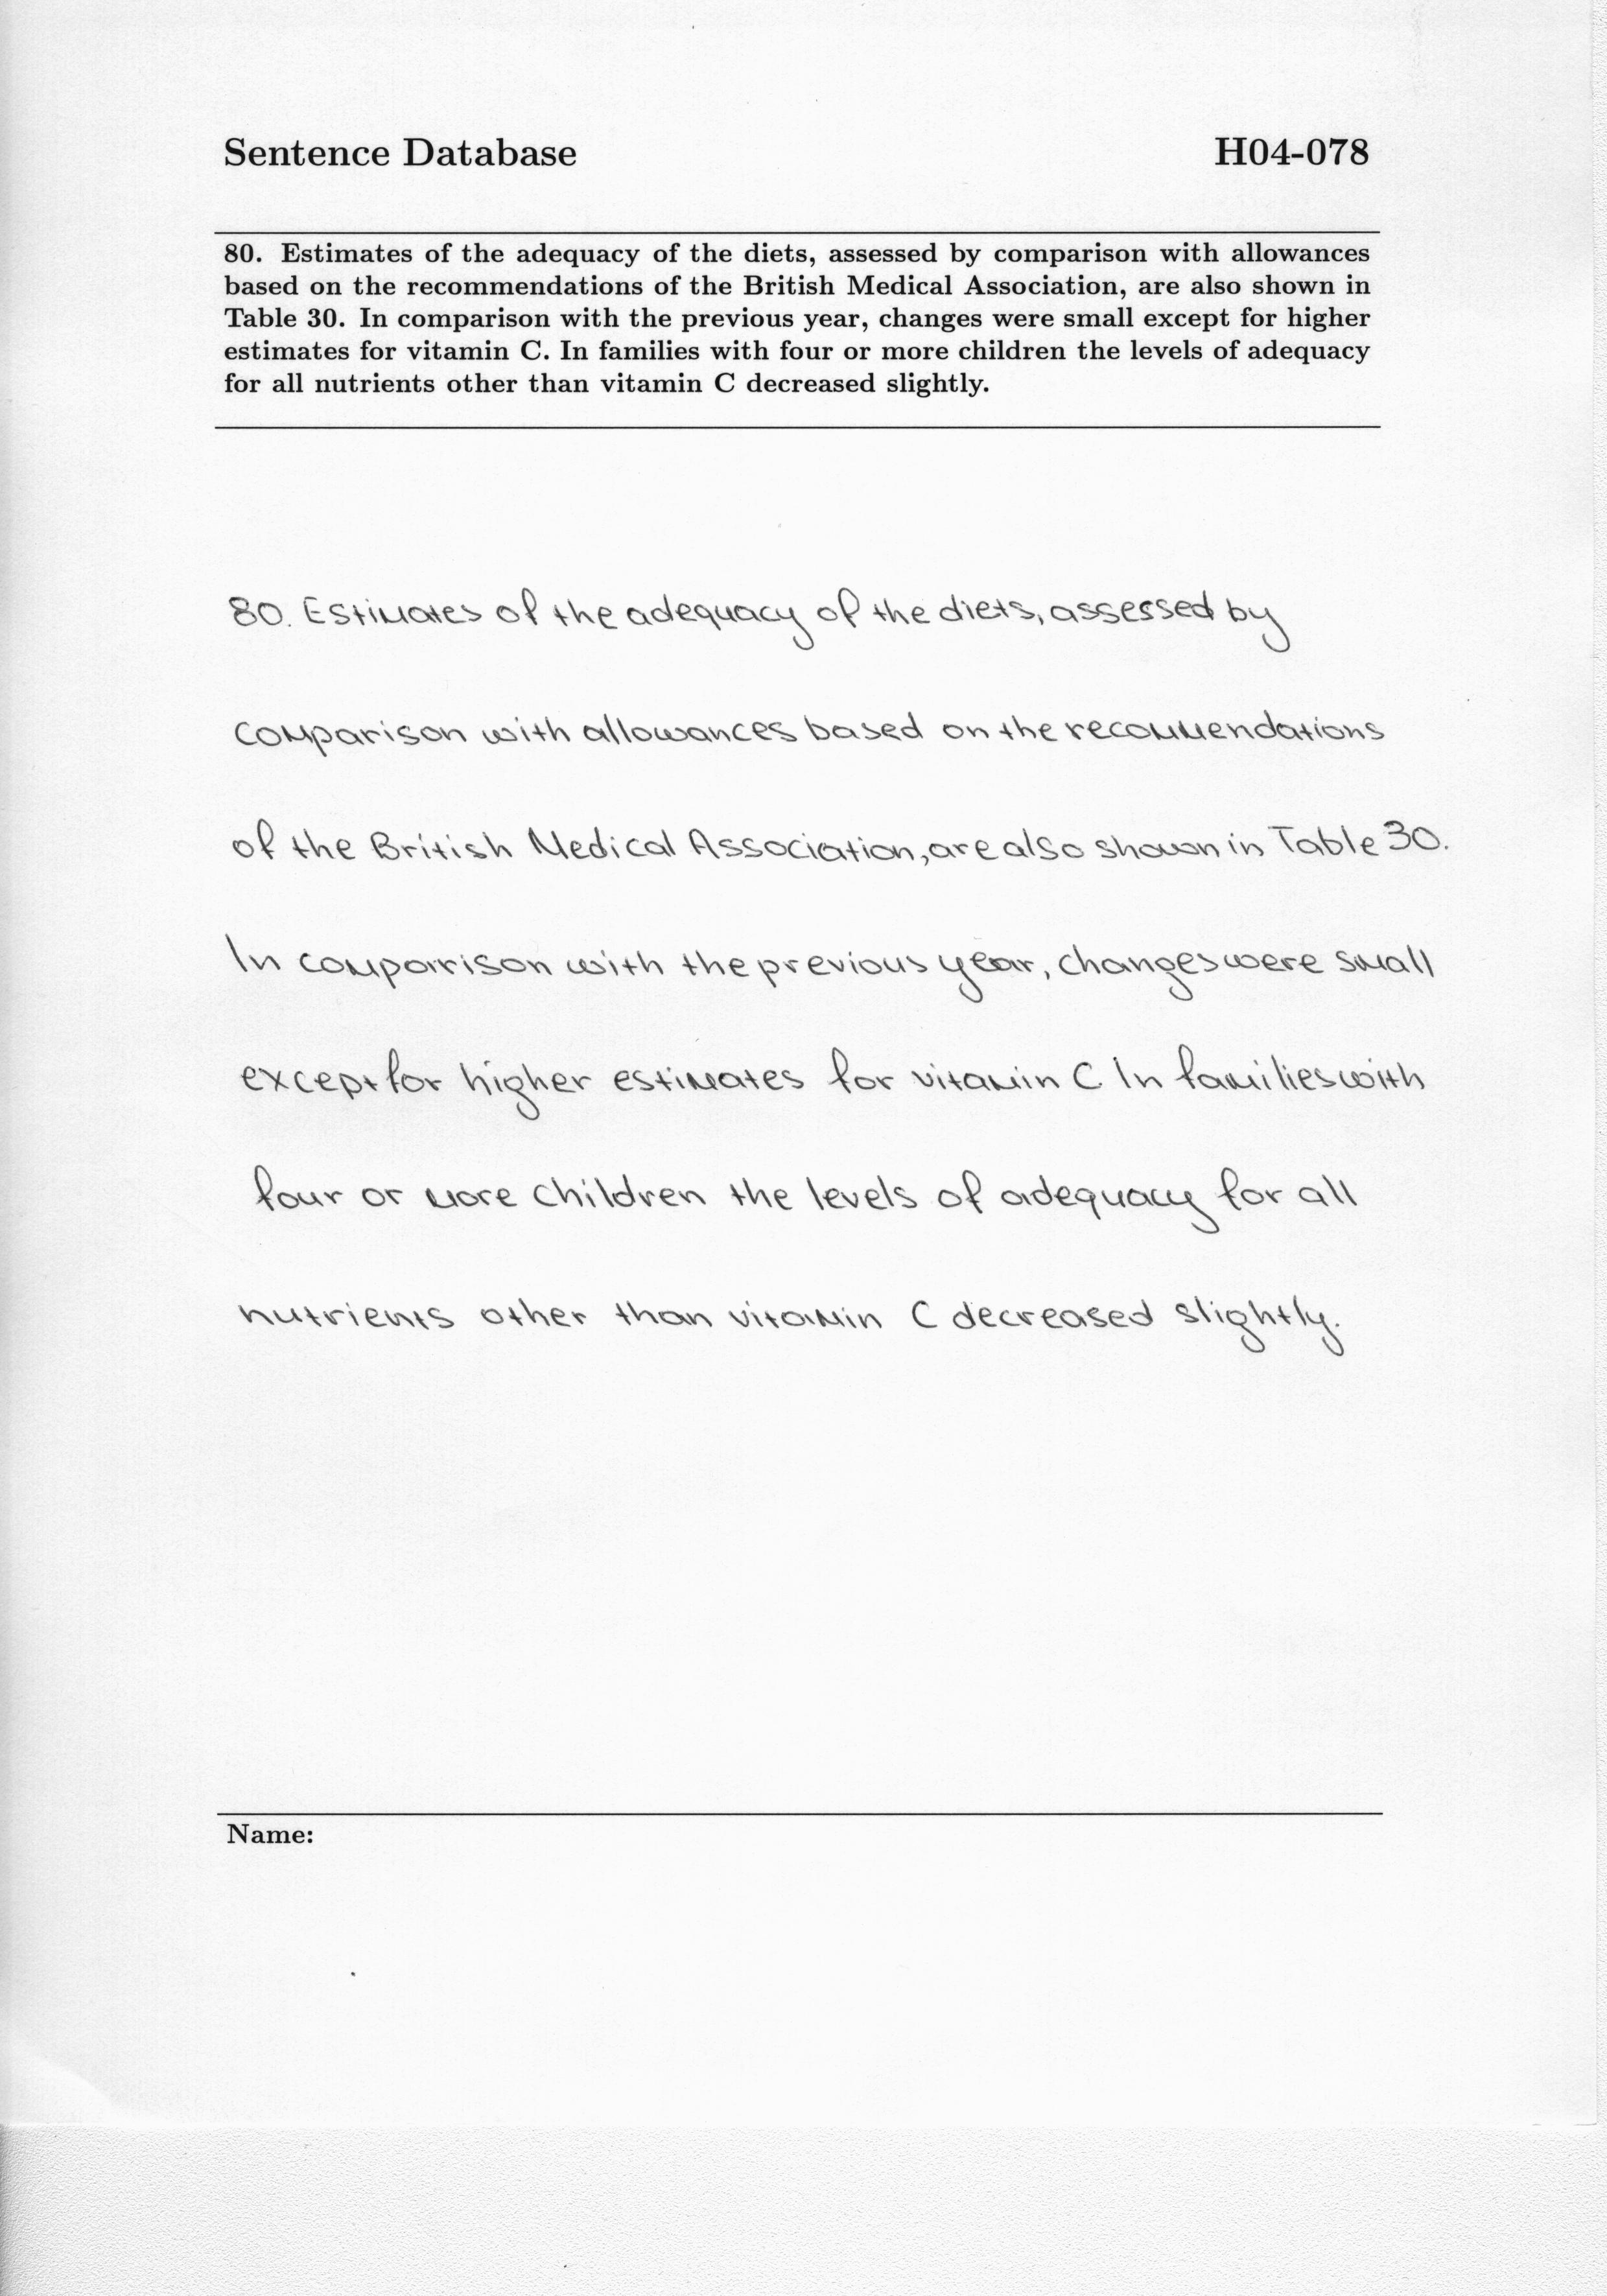 Sentence Database H04-078
80. Estimates of the adequacy of the diets, assessed by comparison with allowances
based on the recommendations of the British Medical Association, are also shown in
Table 30. In comparison with the previous year, changes were small except for higher
estimates for vitamin C. In families with four or more children the levels of adequacy
for all nutrients other than vitamin C decreased slightly.
80. Estimates of the adequacy of the diets, assessed by
comparison with allowances based on the recommendations
of the British Medical Association, are also shown in Table 30.
In comparison with the previous year, changes were small
except for higher estimates for vitamin C. In families with
four or more children the levels of adequacy for all
nutrients other than vitamin C decreased slightly.
Name: